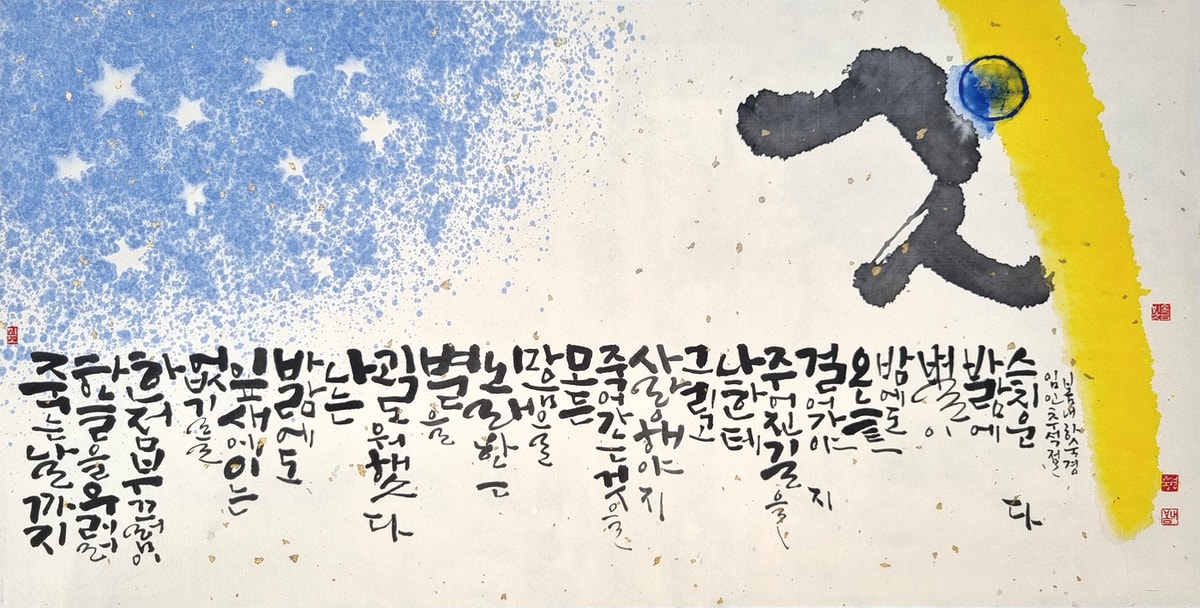 죽는 날까지
하늘을 우러러
한점 부끄럼이
없기를
잎새에 이는
바람에도
나는
괴로워했다
별을
노래하는
마음으로
모든
죽어가는 것을
사랑해야지
그리고
나한테
주어진 길을
걸어가야지
오늘
밤에도
별이
바람에
스치운다
임인 추석절